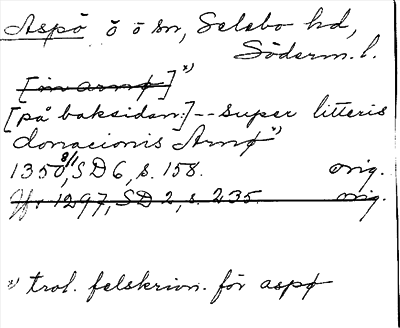 Aspö ö ö sn, Selebo hd,
Söderm. l.
[in arnø] *)
[på baksidan:] -- super litteris
donacionis Arnø *)
1350 8/1, SD 6, s. 158. orig.
Jfr 1297, SD 2, s. 235. orig.
*) trol. felskrivn. för aspø